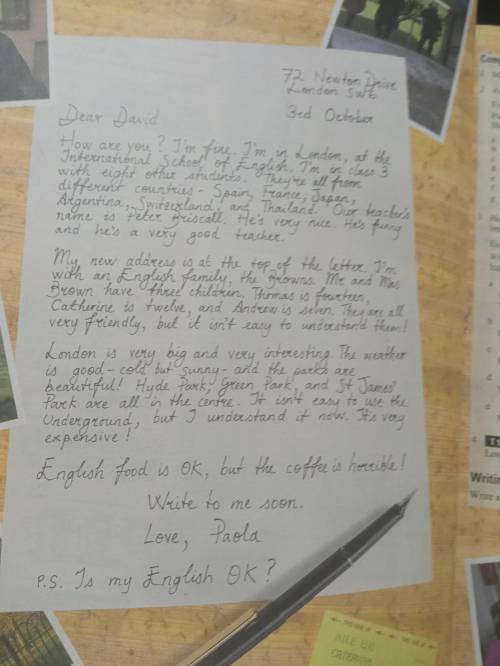 72 Newton Drive
London SW6
3rd October
Dear David
How are you? I'm fine. I'm in London, at the
International School of English. I'm in class 3
with eight other students. They're all from
different countries - Spain, France, Japan,
Argentina, Switzerland, and Thailand. Our teacher's
name is Peter Briscall. He's very nice. He's funny
and he's a very good teacher.
My new address is at the top of the letter. I'm
with an English family, the Browns. Mr and Mrs
Brown have three children. Thomas is fourteen,
Catherine is twelve, and Andrew is seven. They are all
very friendly, but it isn't easy to understand them!
London is very big and very interesting. The weather
is good - cold but sunny - and the parks are
beautiful! Hyde Park, Green Park, and St James'
Park are all in the centre. It isn't easy to use the
Underground, but I understand it now. It's very
expensive!
English food is OK, but the coffee is horrible!
Write to me soon.
Love, Paola
P.S. Is my English OK?
Writing